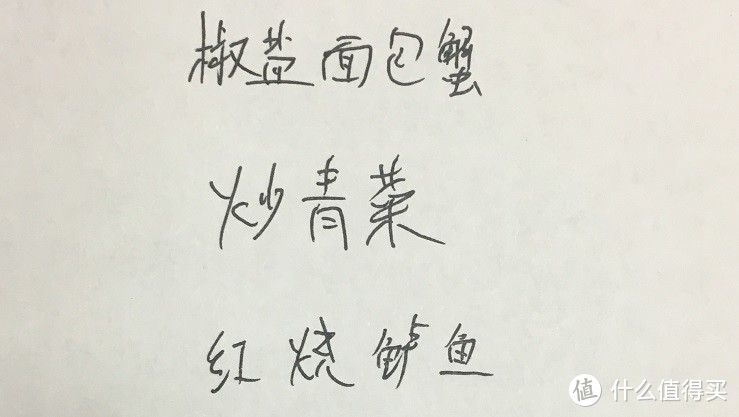 椒盐面包蟹
炒青菜
红烧鲈鱼
值 什么值得买